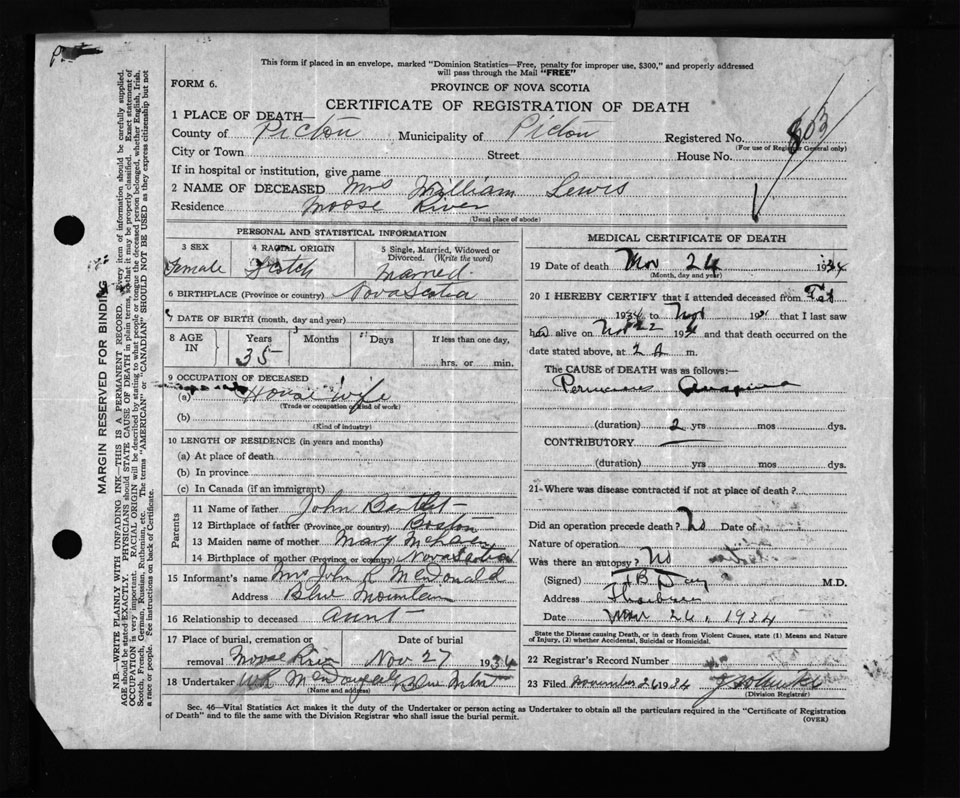 This form if placed in an envelope, marked "Dominion Statistics—Free, penalty for improper use, $300," and properly addressed
will pass through the Mail "FREE"
FORM 6.
PROVINCE OF NOVA SCOTIA
CERTIFICATE OF REGISTRATION OF DEATH
1 PLACE OF DEATH—
County of Pictou Municipality of Pictou Registered No. 803
(For use of Registrar General only)
City or Town Street House No.
If in hospital or institution, give name
2 NAME OF DECEASED Mrs William Lewis
Residence Moose River
(Usual place of abode)
PERSONAL AND STATISTICAL INFORMATION
3 SEX 4 RACIAL ORIGIN 5 Single, Married, Widowed or
Divorced. (Write the word)
Female Scotch Married
6 BIRTHPLACE (Province or country) Nova Scotia
7 DATE OF BIRTH (month, day and year)
8 AGE IN Years Months Days If less than one day,
35 hrs. or min.
9 OCCUPATION OF DECEASED
(a) House Wife
(Trade or occupation or kind of work)
(b)
(Kind of industry)
10 LENGTH OF RESIDENCE (in years and months)
(a) At place of death
(b) In province
(c) In Canada (if an immigrant)
Parents
11 Name of father John Bartlet
12 Birthplace of father (Province or country) Boston
13 Maiden name of mother Mary
14 Birthplace of mother (Province or country) Nova Scotia
15 Informant's name Mrs John A McDonald
Address Blue Mountain
16 Relationship to deceased Aunt
17 Place of burial, cremation or Date of burial
removal Moose River Nov 27 1934
18 Undertaker Blue Mtn
(Name and address)
MEDICAL CERTIFICATE OF DEATH
19 Date of death Nov 24 1934
(Month, day and year)
20 I HEREBY CERTIFY that I attended deceased from
1934 to Nov 1934 that I last saw
h alive on Nov 22 1934 and that death occurred on
date stated above, at 2 A m.
The CAUSE OF DEATH was as follows:—
Pernicious Anaemia
(duration) 2 yrs mos dys.
CONTRIBUTORY
(duration) yrs mos dys.
21 Where was disease contracted if not at place of death?
Did an operation precede death? No Date of
Nature of operation
Was there an autopsy? No
(Signed) H B Day M.D.
Address Thorburn
Date Nov 26, 1934
State the Disease causing Death, or in death from Violent Causes, state (1) Means and Nature
of Injury, (2) whether Accidental, Suicidal or Homicidal.
22 Registrar's Record Number
23 Filed November 26 1934
(Division Registrar)
Sec. 46—Vital Statistics Act makes it the duty of the Undertaker or person acting as Undertaker to obtain all the particulars required in the "Certificate of Registration
of Death" and to file the same with the Division Registrar who shall issue the burial permit.
(OVER)
MARGIN RESERVED FOR BINDING
N.B.—WRITE PLAINLY WITH UNFADING INK—THIS IS A PERMANENT RECORD. Every item of information should be carefully supplied.
AGE should be stated EXACTLY. PHYSICIANS should STATE CAUSE OF DEATH in plain terms, so that it may be properly classified. Exact statement of
OCCUPATION is very important. RACIAL ORIGIN will be described by stating to what people or tongue the deceased person belonged, whether English, Irish,
Scotch, French, German, Russian, Ruthenian, etc. The terms "AMERICAN" or "CANADIAN" SHOULD NOT BE USED as they express citizenship but not
a race or people. See instructions on back of Certificate.